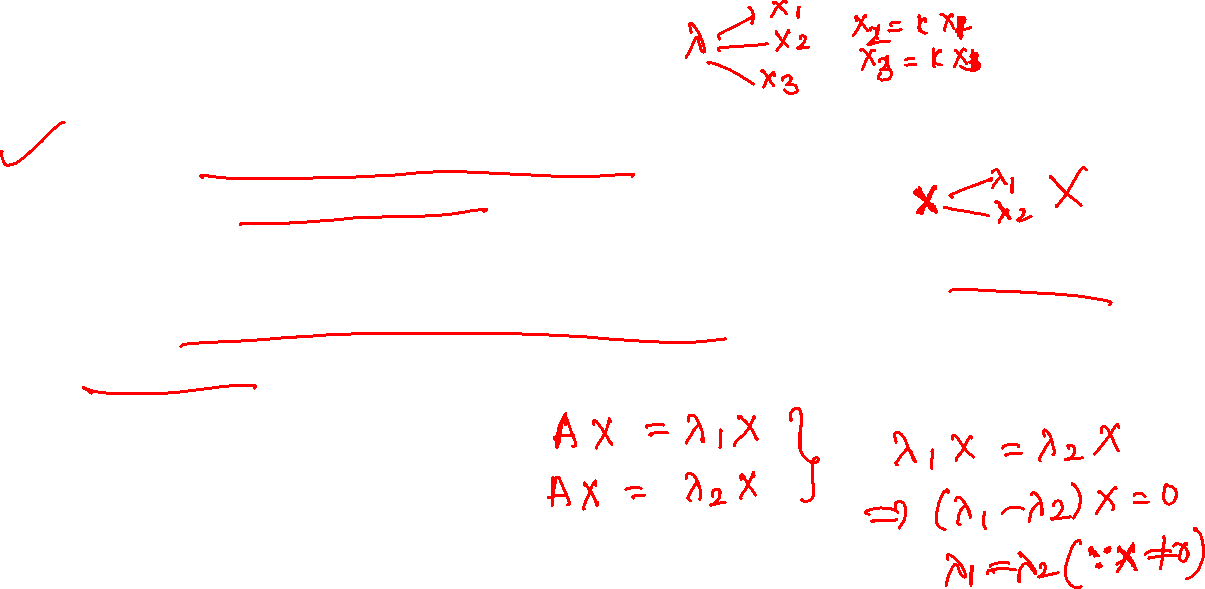 x1
λ x2 x2 = k x1
x3 x3 = k x1
x λ1 X
λ2
AX = λ1X
AX = λ2X
λ1X = λ2X
⇒ (λ1 - λ2) X = 0
λ1 = λ2 (∵ X ≠ 0)